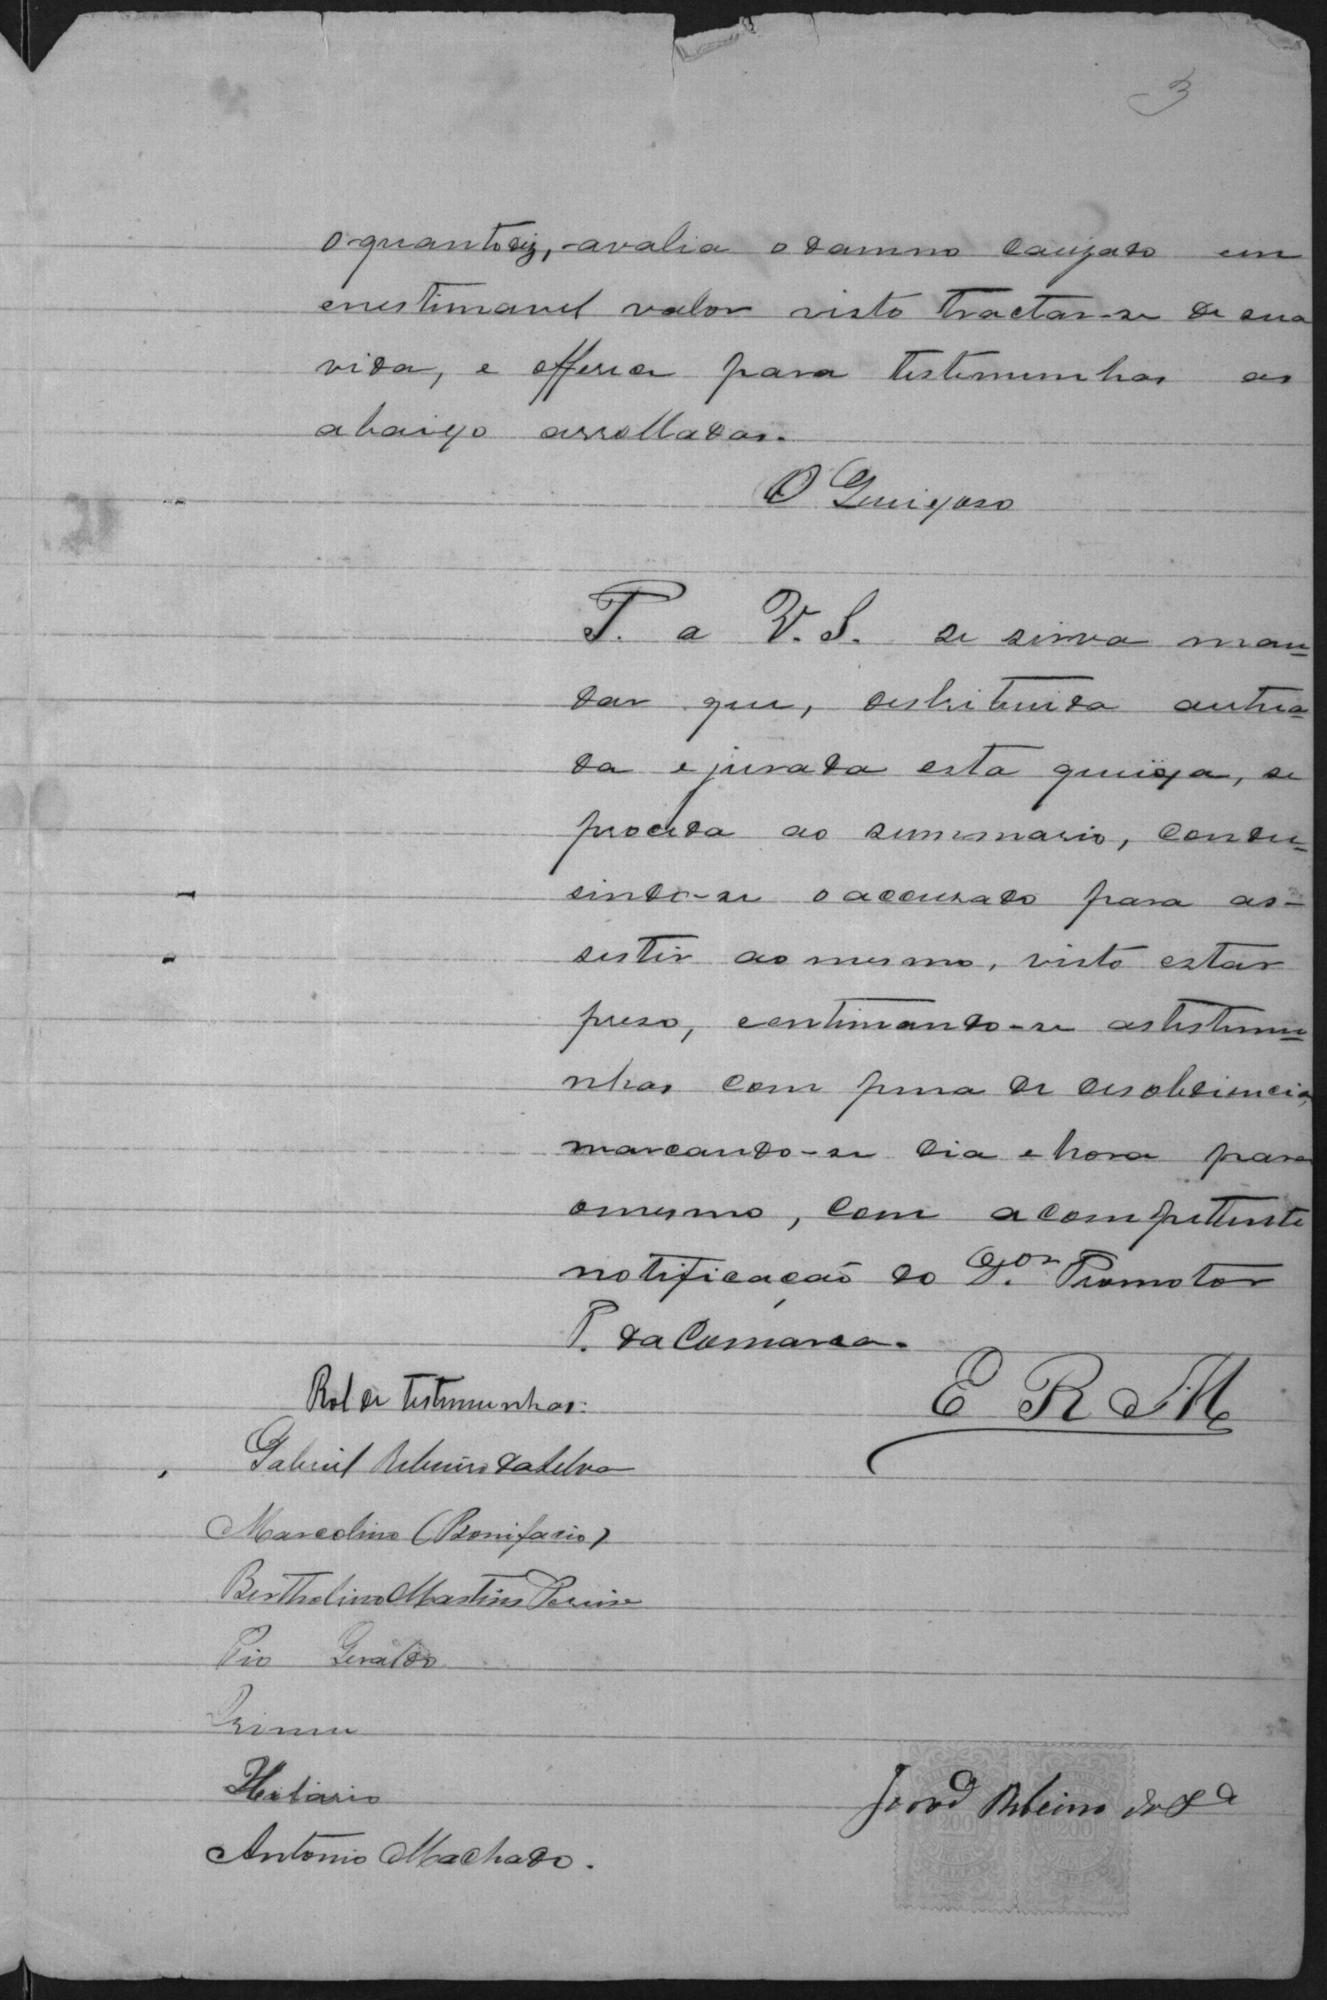 3
o quanto diz, avalia o damno cauzado em
enestimavel valor visto tractar-se de sua
vida, e offerece para testemunhas as
abaixo arrolladas.
O Queixoso
P. a V. S. se sirva man-
dar que, destribuida autua-
da e jurada esta queixa, se
proceda ao summario, condu-
sindo-se o accusado para as-
sestir ao mesmo, visto estar
preso, entimando-se as testemu-
nhas com pena de desobdiencia,
marcando-se dia e hora para
o mesmo, com a competente
notificação do D.or Promotor
P. da Comarca.
E R M
Rol de testemunhas:
Gabriel Ribeiro da Silva
Marcolino (Bonifacio)
Bertholino Martins
Pio Geraldo
Hilario
Antonio Machado.
Ribeiro da S.a
200 200